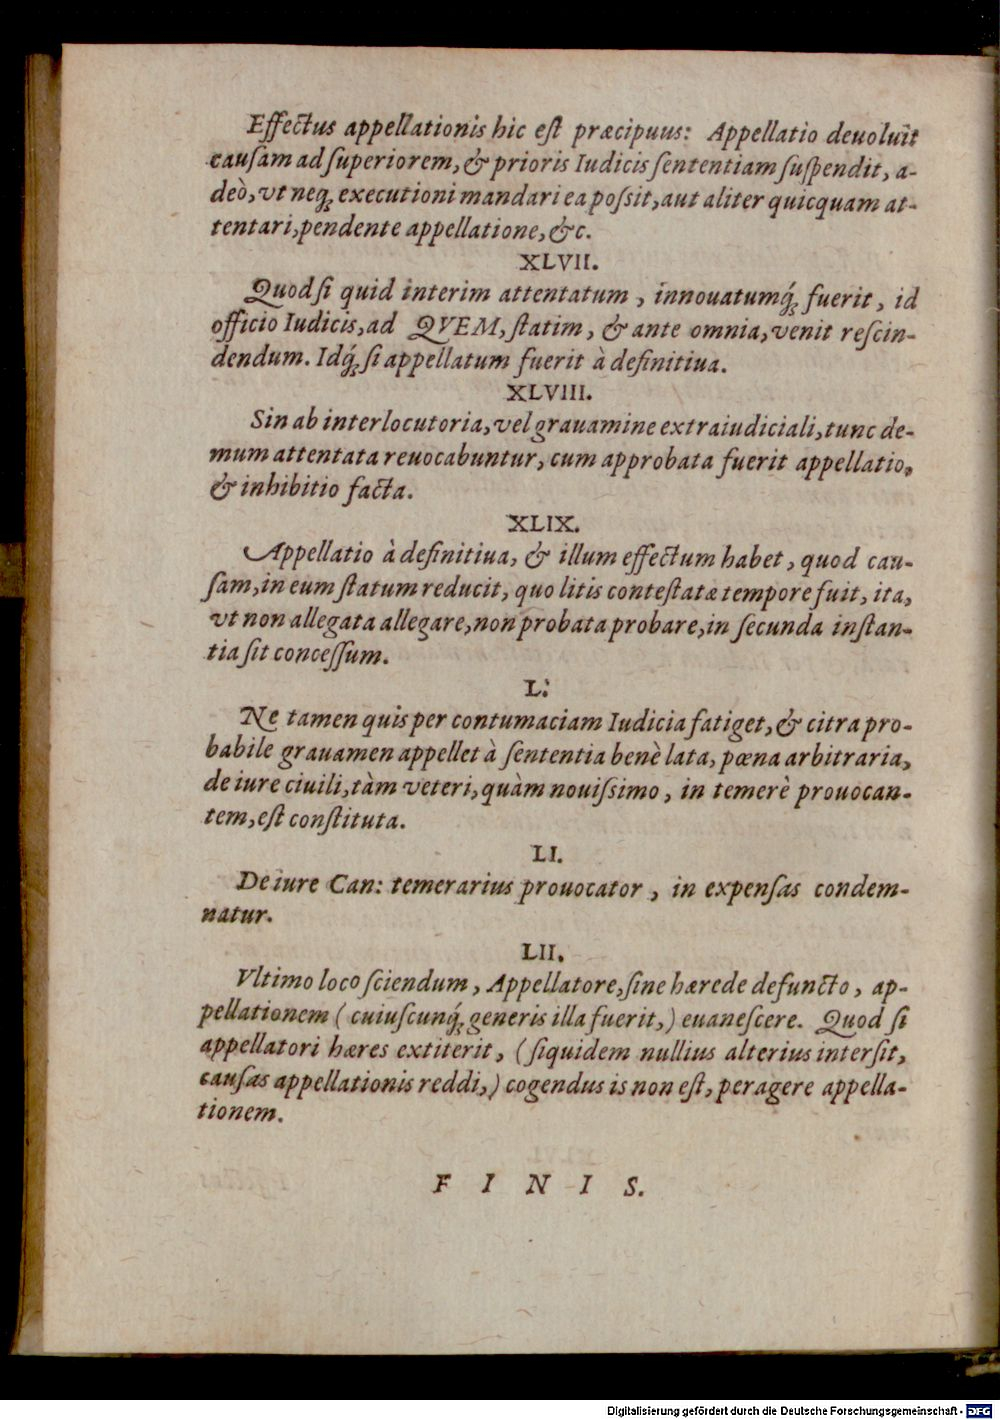 Effectus appellationis hic est præcipuus: Appellatio deuoluit
causam ad superiorem, & prioris Iudicis sententiam suspendit, a-
deò, vt neq́ executioni mandari ea possit, aut aliter quicquam at-
tentari, pendente appellatione, &c.
XLVII.
Quod si quid interim attentatum, innouatumq́ fuerit, id
officio Iudicis, ad QVEM, statim, & ante omnia, venit rescin-
dendum. Idq́ si appellatum fuerit à definitiua.
XLVIII.
Sin ab interlocutoria, vel grauamine extraiudiciali, tunc de-
mum attentata reuocabuntur, cum approbata fuerit appellatio,
& inhibitio facta.
XLIX.
Appellatio à definitiua, & illum effectum habet, quod cau-
sam, in eum statum reducit, quo litis contestatæ tempore fuit, ita,
vt non allegata allegare, non probata probare, in secunda instan-
tia sit concessum.
L.
Ne tamen quis per contumaciam Iudicia fatiget, & citra pro-
babile grauamen appellet à sententia benè lata, pœna arbitraria,
de iure ciuili, tàm veteri, quàm nouissimo, in temerè prouocan-
tem, est constituta.
LI.
De iure Can: temerarius prouocator, in expensas condem-
natur.
LII.
Vltimo loco sciendum, Appellatore, sine hærede defuncto, ap-
pellationem (cuiuscunq́ generis illa fuerit,) euanescere. Quod si
appellatori hæres extiterit, (siquidem nullius alterius intersit,
causas appellationis reddi,) cogendus is non est, peragere appella-
tionem.
F I N I S.
Digitalisierung gefördert durch die Deutsche Forschungsgemeinschaft - DFG